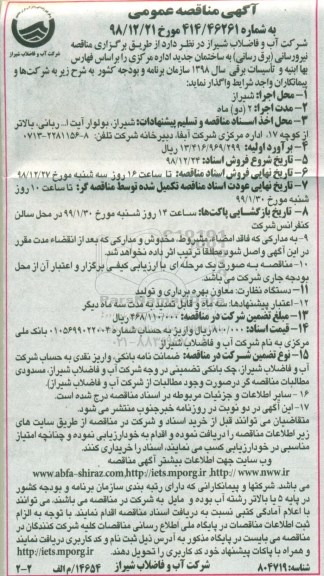 آگهی مناقصه عمومی
به شماره ۴۱۴/۴۶۲۶۱ مورخ ۹۸/۱۲/۲۱
شرکت آب و فاضلاب شیراز
شرکت آب و فاضلاب شیراز در نظر دارد از طریق برگزاری مناقصه
نیرورسانی (برق رسانی) به ساختمان جدید اداره مرکزی را براساس فهارس
بها ابنیه و تاسیسات برقی سال ۱۳۹۸ سازمان برنامه و بودجه کشور به شرح زیر به شرکت‌ها و
پیمانکاران واجد شرایط واگذار نماید:
۱- محل اجرا: شیراز
۲- مدت اجرا: ۲ (دو) ماه
۳- محل اخذ اسناد مناقصه و تسلیم پیشنهادات: شیراز، بولوار آیت ا... ربانی، بالاتر
از کوچه ۱۷، اداره مرکزی شرکت آبفا، دبیرخانه شرکت تلفن: ۸-۲۲۸۱۱۵۶-۰۷۱۳
۴- برآورد اولیه: ۱۳/۳۱۶/۹۶۹/۲۹۹ ریال
۵- تاریخ شروع فروش اسناد: ۹۸/۱۲/۲۴
۶- تاریخ نهایی فروش اسناد مناقصه: تا ساعت ۱۶ روز سه شنبه مورخ ۹۸/۱۲/۲۷
۷- تاریخ نهایی عودت اسناد مناقصه تکمیل شده توسط مناقصه گر: تا ساعت ۱۰ روز
شنبه مورخ ۹۹/۱/۳۰
۸- تاریخ بازگشایی پاکت‌ها: ساعت ۱۲ روز شنبه مورخ ۹۹/۱/۳۰ در محل سالن
کنفرانس شرکت
۹- به مدارکی که فاقد امضاء، مشروط، مخدوش و مدارکی که بعد از انقضاء مدت مقرر
در این آگهی واصل شود مطلقاً ترتیب اثر داده نخواهد شد.
۱۰- مناقصه به صورت یک مرحله ای با ارزیابی کیفی برگزار و اعتبار آن از محل
بودجه جاری شرکت می باشد.
۱۱- دستگاه نظارت: معاون بهره برداری و تولید
۱۲- اعتبار پیشنهادها: سه ماه و قابل تمدید به مدت سه ماه دیگر
۱۳- مبلغ تضمین شرکت در مناقصه: ۴۶۸/۱۱۰/۰۰۰ ریال
۱۴- قیمت اسناد: ۸۰۰/۰۰۰ ریال واریز به حساب شماره ۰۱۰۵۶۹۹۰۲۲۰۰۴ بانک ملی
مرکزی به نام شرکت آب و فاضلاب شیراز
۱۵- نوع تضمین شرکت در مناقصه: ضمانت نامه بانکی، واریز نقدی به حساب شرکت
آب و فاضلاب شیراز، چک بانکی تضمینی در وجه شرکت آب و فاضلاب شیراز، مسدودی
مطالبات مناقصه گر درصورت وجود مطالبات از شرکت آب و فاضلاب شیراز).
۱۶- سایر اطلاعات و جزئیات مربوطه در اسناد مناقصه درج شده است.
۱۷- این آگهی در دو نوبت در روزنامه خبرجنوب منتشر می شود.
متقاضیان می توانند قبل از خرید اسناد و شرکت در مناقصه از طریق سایت های
زیر اطلاعات مناقصه را دریافت نموده و اقدام به خودارزیابی نموده و چنانچه امتیاز
مناسبی در خودارزیابی کسب می نمایند، اسناد را خریداری کنند.
وب سایت جهت اطلاعات بیشتر آگهی مناقصه
www.abfa-shiraz.com,http://iets.mporg.ir ,http:// www.nww.ir
می باشد. شرکتها و پیمانکارانی که دارای رتبه بندی سازمان برنامه و بودجه کشور
در پایه ۵ یا بالاتر رشته آب بوده و مایل به شرکت در مناقصه می باشند، می توانند
با اعلام آمادگی کتبی نسبت به دریافت اسناد مناقصه اقدام نمایند. با توجه به الزام
ثبت اطلاعات مناقصات در پایگاه ملی اطلاع رسانی مناقصات کلیه شرکت کنندگان در
مناقصه می بایست در پایگاه مذکور به آدرس ذیل ثبت نام و کد کاربری دریافت نمایند
و همراه با پاکات پیشنهاد خود کد کاربری را تحویل دهند. http://iets.mporg.ir
شناسه: ۸۰۴۷۱۹ شرکت آب و فاضلاب شیراز ۱۴۶۵۴/م الف ۲-۲